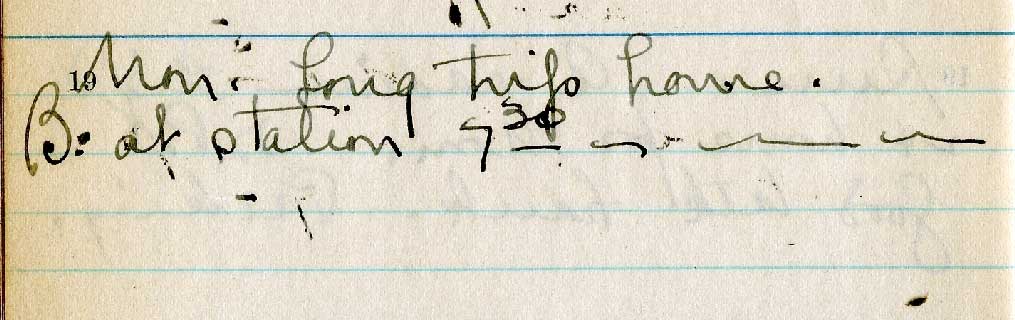 19 Mon. Long trip home.
B. at station 7 30 — — —